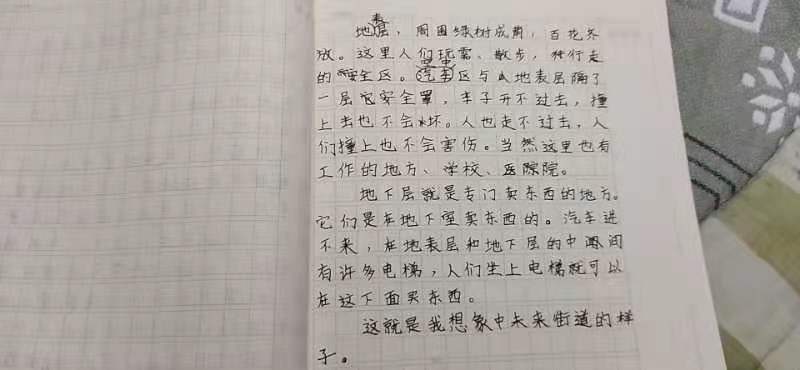 地表层，周围绿树成荫，百花齐
放。这里人们玩耍、散步，
的安全区。汽车区与地表层隔了
一层安全罩，车子开不过去，撞
上去也不会坏。人也走不过去，人
们撞上也不会害伤。当然这里也有
工作的地方、学校、医院。
地下层就是专门卖东西的地方。
它们是在地下室卖东西的。汽车进
不来，在地表层和地下层的中间
有许多电梯，人们坐上电梯就可以
在这下面买东西。
这就是我想象中未来街道的样
子。